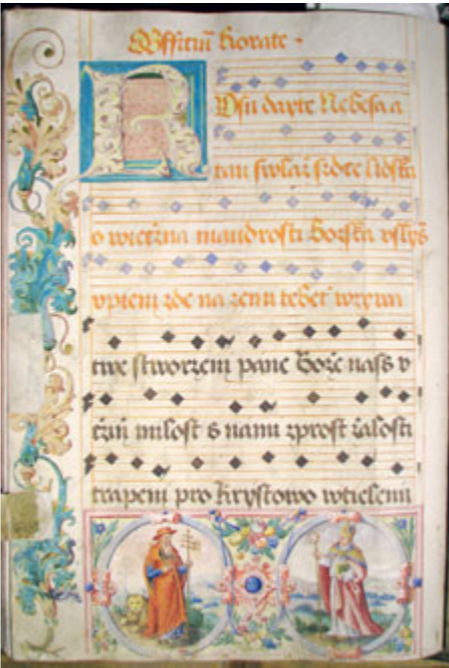 Officiũ Rorate
Rosu dayte Nebesa a
tau swlaž srdce lidska
o wiecžna maudrosti Božska uslyš
vpieni zde na zemi tebeť wzywa
twe stworzeni pane Bože nass v
cžiň milost s nami zprost žalosti
trapeni pro krystowo wtieleni